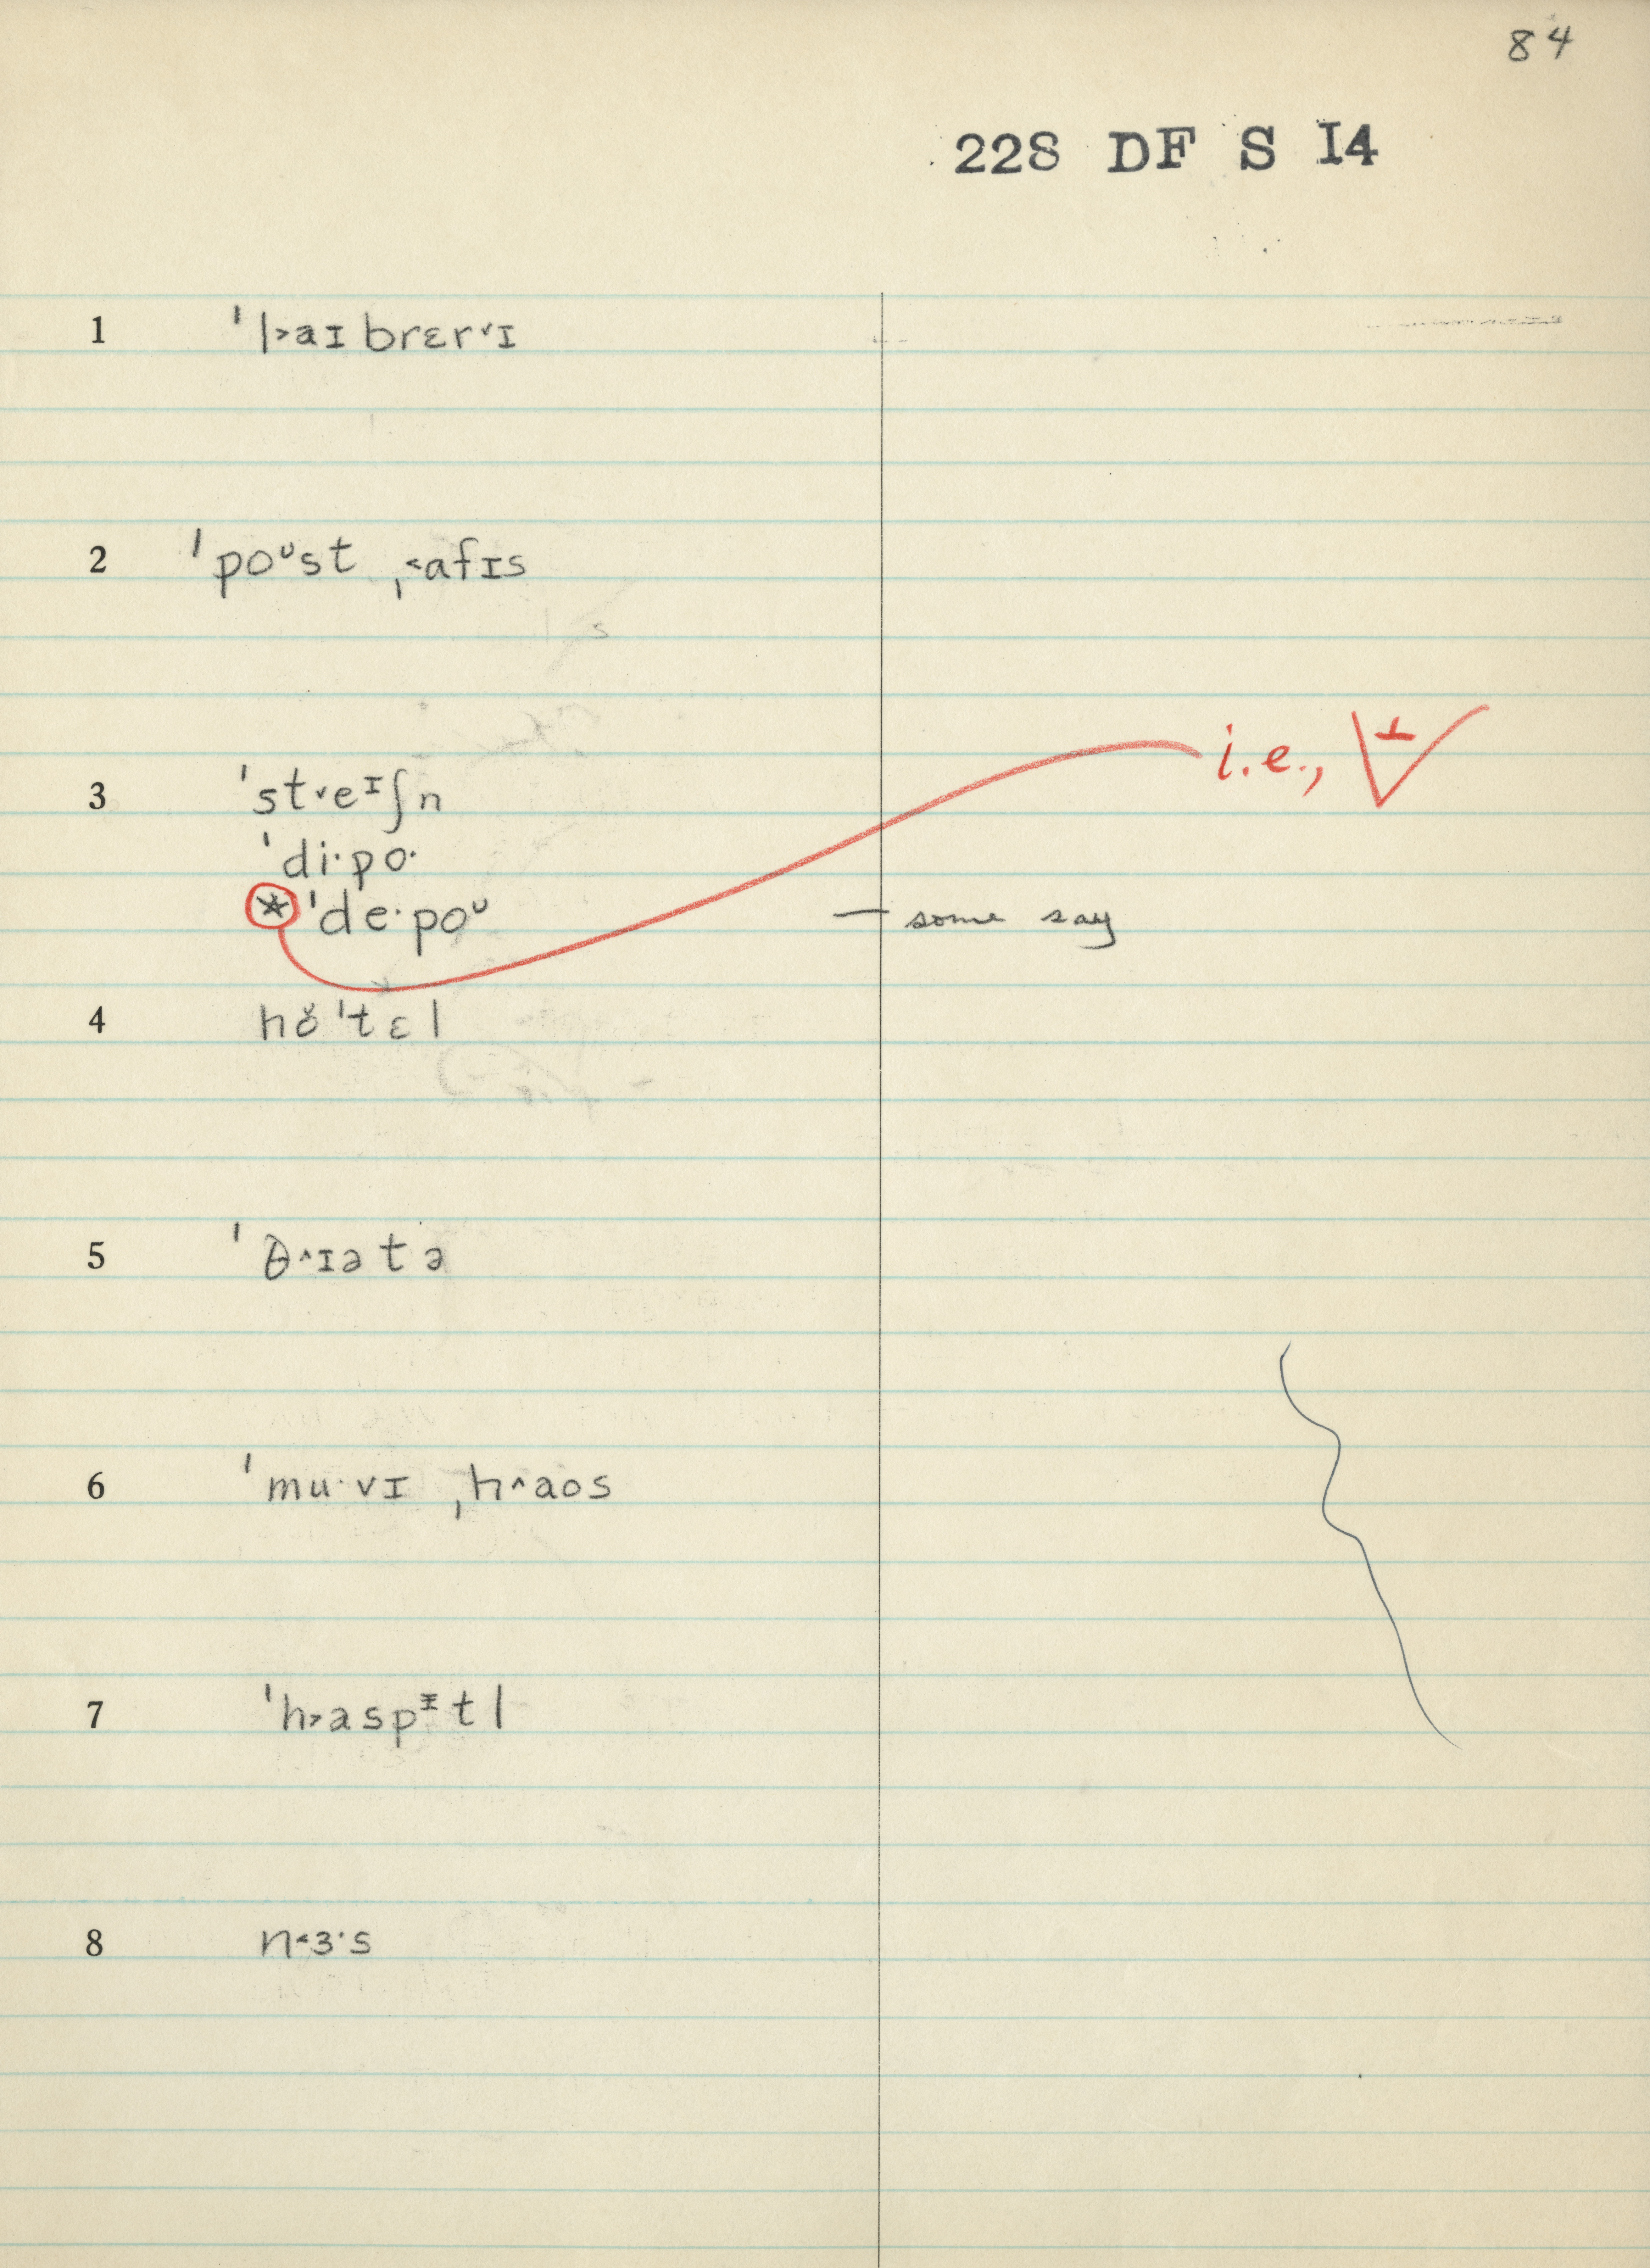 84
22S DF S I4
1 ˈl˃aɪbrɛr˅ɪ
2 ˈpoᶷst ˌ˂afɪs
3 ˈst˅eᶦʃn
ˈdi·po·
* ˈde·poᶷ — some say
i.e.,
4 hŏˈtɛl
5 ˈθ^ɪətə
6 ˈmu·vɪ ˌh^aos
7 ˈh˃aspᵻtl
8 n˂ɜ·s